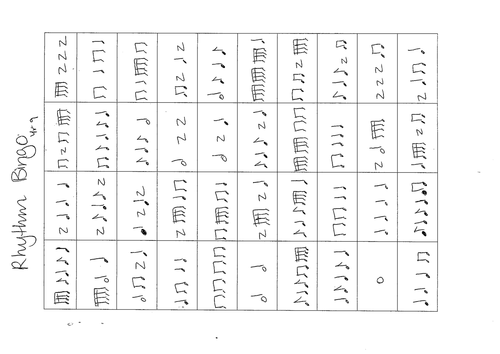 Rhythm Bingo
Yr 9